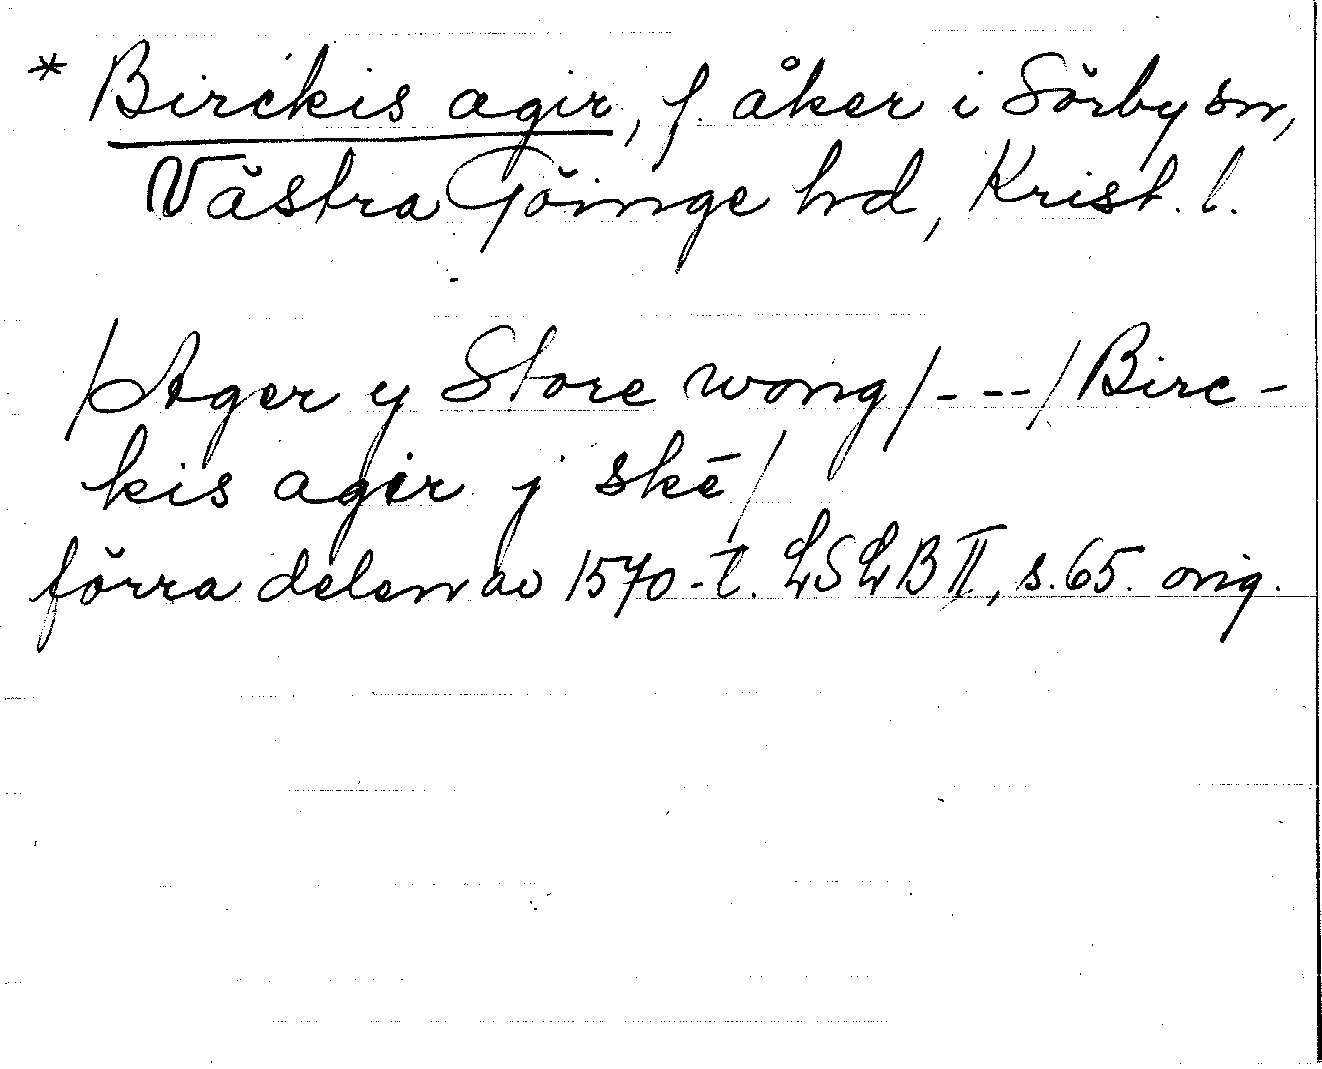 * Birckis agir, f. åker i Sörby sn,
Västra Göinge hd, Krist. l.
/Ager y Store wong/---/Birc-
kis agir j skē/
förra delen av 1570-t. LSLB II, s. 65. orig.